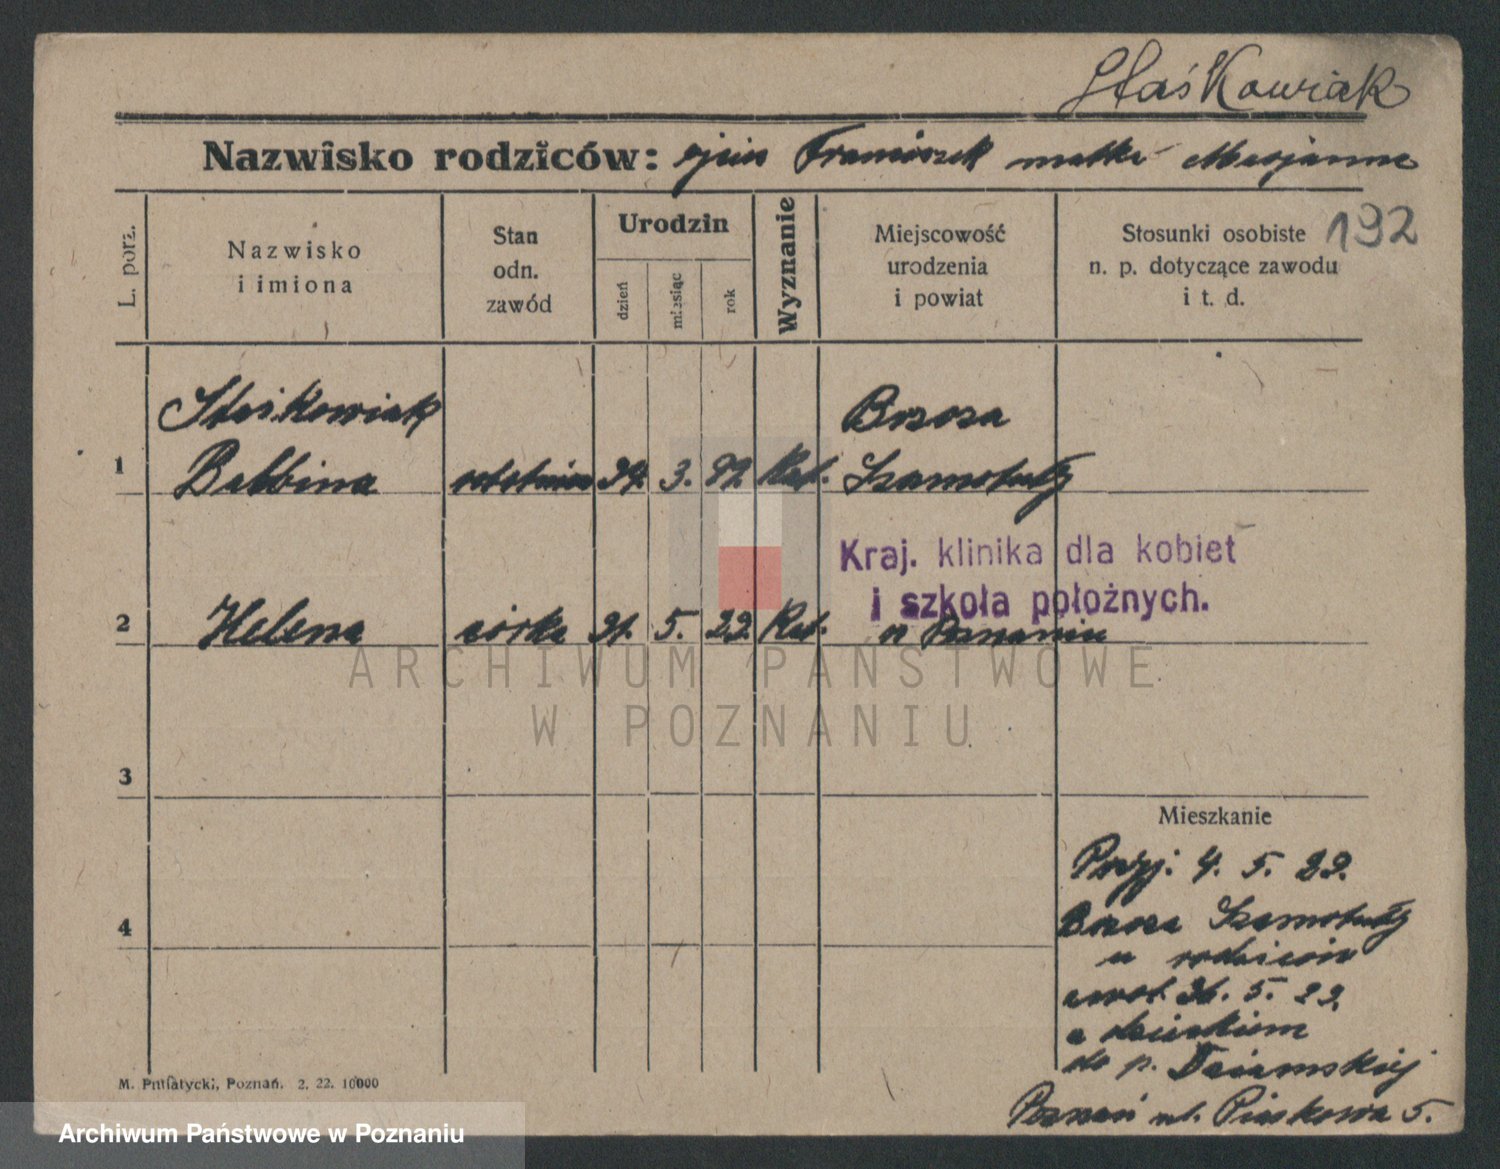 Staśkowiak
Nazwisko rodziców: ojciec Franciszek matka Marjanna
192
L. porz.
Nazwisko
i imiona
Stan
odn.
zawód
Urodzin
dzień
miesiąc
rok
Wyznanie
Miejscowość
urodzenia
i powiat
Stosunki osobiste
n. p. dotyczące zawodu
i t. d.
Staśkowiak Brzoza
1 Balbina robotnica 24. 3. Kat. Szamotuły
Kraj. klinika dla kobiet
i szkoła położnych.
2 Helena córka 21. 5. 22. Kat. w Poznaniu
ARCHIWUM PAŃSTWOWE
W POZNANIU
3
Mieszkanie
Przyj. 4. 5. 22.
Brzoza Szamotuły
4
u rodziców
5. 22.
z dzieckiem
do p.
Poznań ul. Piaskowa 5.
M. Putiatycki, Poznań. 2. 22. 10000
Archiwum Państwowe w Poznaniu